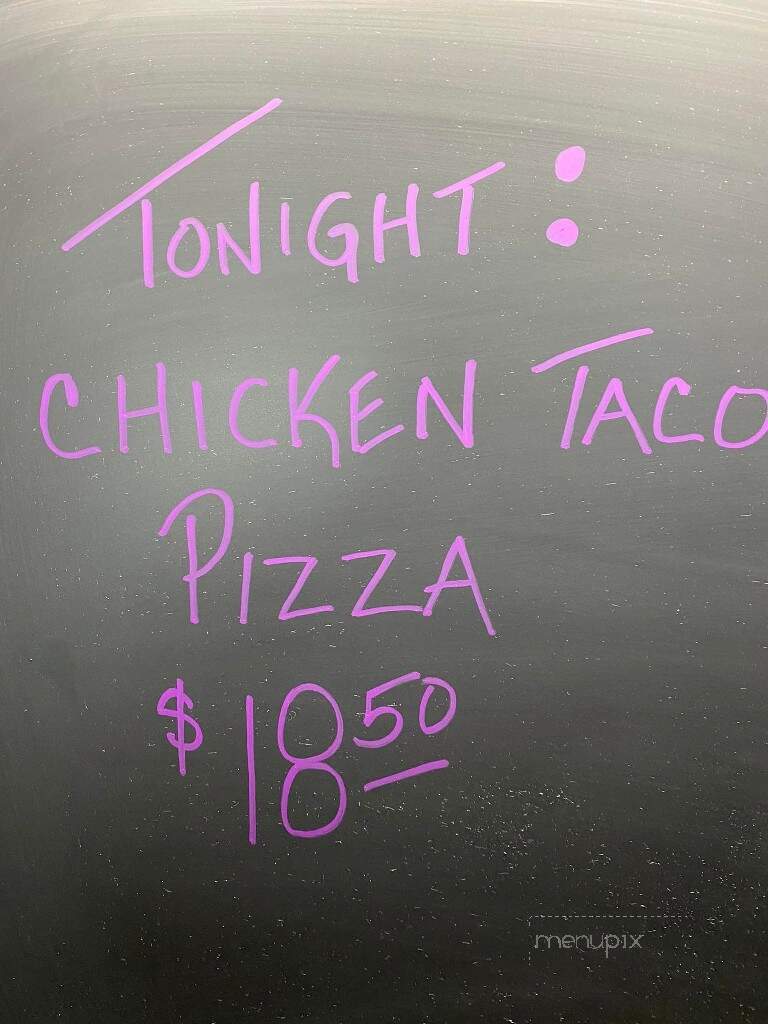 TONIGHT:
CHICKEN TACO
PIZZA
$18.50
menupix